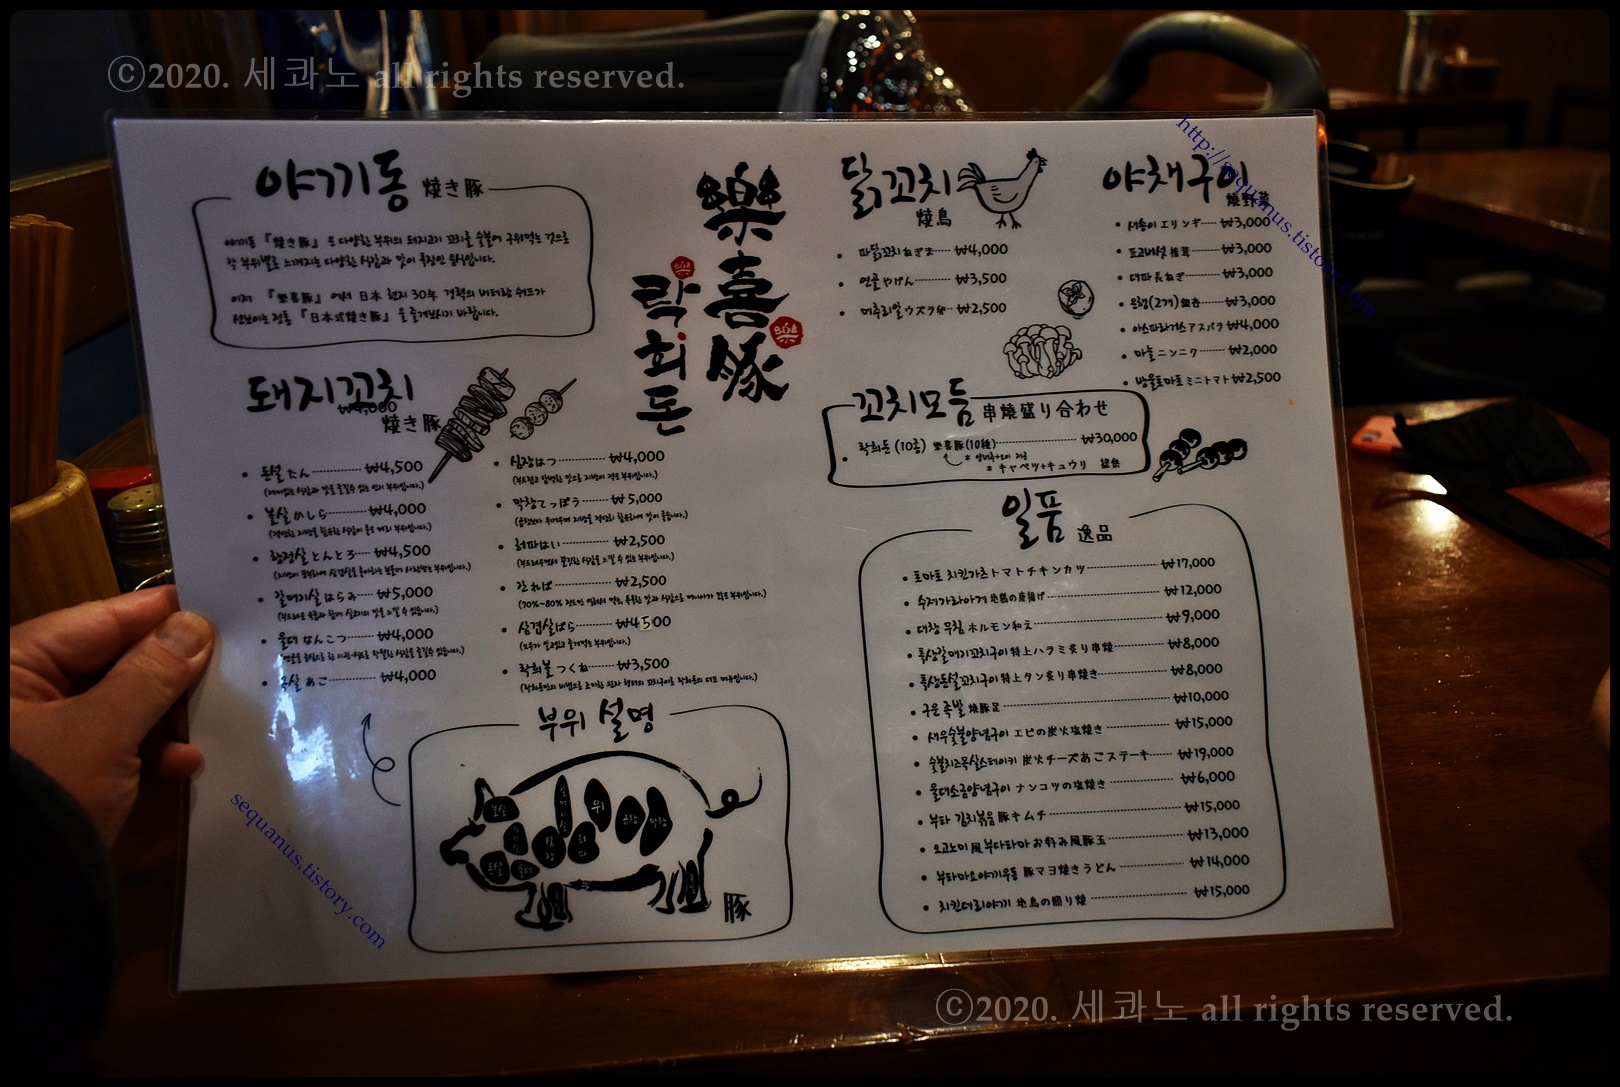 ⓒ2020. 세콰노 all rights reserved.
http://sequanus.tistory.com
야끼동 焼き豚
야끼동 『焼き豚』은 다양한 부위의 돼지고기 꼬치를 숯불에 구워먹는 것으로
각 부위별로 느껴지는 다양한 식감과 맛이 특징인 음식입니다.
이제 『楽喜豚』에서 日本 현지 30年 경력의 베테랑 쉐프가
선보이는 정통 『日本式焼き豚』을 즐겨보시기 바랍니다.
樂喜豚
락희돈
돼지꼬치
₩4,000
焼き豚
돈설 たん ₩4,500
볼살 かしら ₩4,000
항정살 とんとろ ₩4,500
갈매기살 はらみ ₩5,000
울대 なんこつ ₩4,000
목살 あご ₩4,000
심장 はつ ₩4,000
막창 てっぽう ₩5,000
허파 はい ₩2,500
간 ればー ₩2,500
삼겹살 ばら ₩4500
락희볼 つくね ₩3,500
부위 설명
볼살
위
곱창
막창
심장
허파
돈설
울대
豚
닭꼬치
焼鳥
파닭꼬치 ねぎま ₩4,000
연골 やげん ₩3,500
메추리알 ウズラ卵 ₩2,500
야채구이
焼野菜
새송이 エリンギ ₩3,000
표고버섯 椎茸 ₩3,000
대파 長ねぎ ₩3,000
은행(2개) 銀杏 ₩3,000
아스파라거스 アスパラ ₩4,000
마늘 ニンニク ₩2,000
방울토마토 ミニトマト ₩2,500
꼬치모듬 串焼盛り合わせ
락희돈 (10종) 楽喜豚(10種) ₩30,000
* 양배추+오이 제공
* キャベツ+キュウリ 提供
일품 逸品
토마토 치킨가츠 トマトチキンカツ ₩17,000
수제가라아게 地鶏の唐揚げ ₩12,000
대창 무침 ホルモン和え ₩9,000
특상갈매기꼬치구이 特上ハラミ炙り串焼 ₩8,000
특상돈설꼬치구이 特上タン炙り串焼き ₩8,000
구운 족발 焼豚足 ₩10,000
새우숯불양념구이 エビの炭火塩焼き ₩15,000
숯불치즈목살스테이키 炭火チーズあごステーキ ₩19,000
울대소금양념구이 ナンコツの塩焼き ₩6,000
부타 김치볶음 豚キムチ ₩15,000
오코노미風부타타마 お好み風豚玉 ₩13,000
부타마요야끼우동 豚マヨ焼きうどん ₩14,000
치킨데리야끼 地鳥の照り焼 ₩15,000
sequanus.tistory.com
ⓒ2020. 세콰노 all rights reserved.